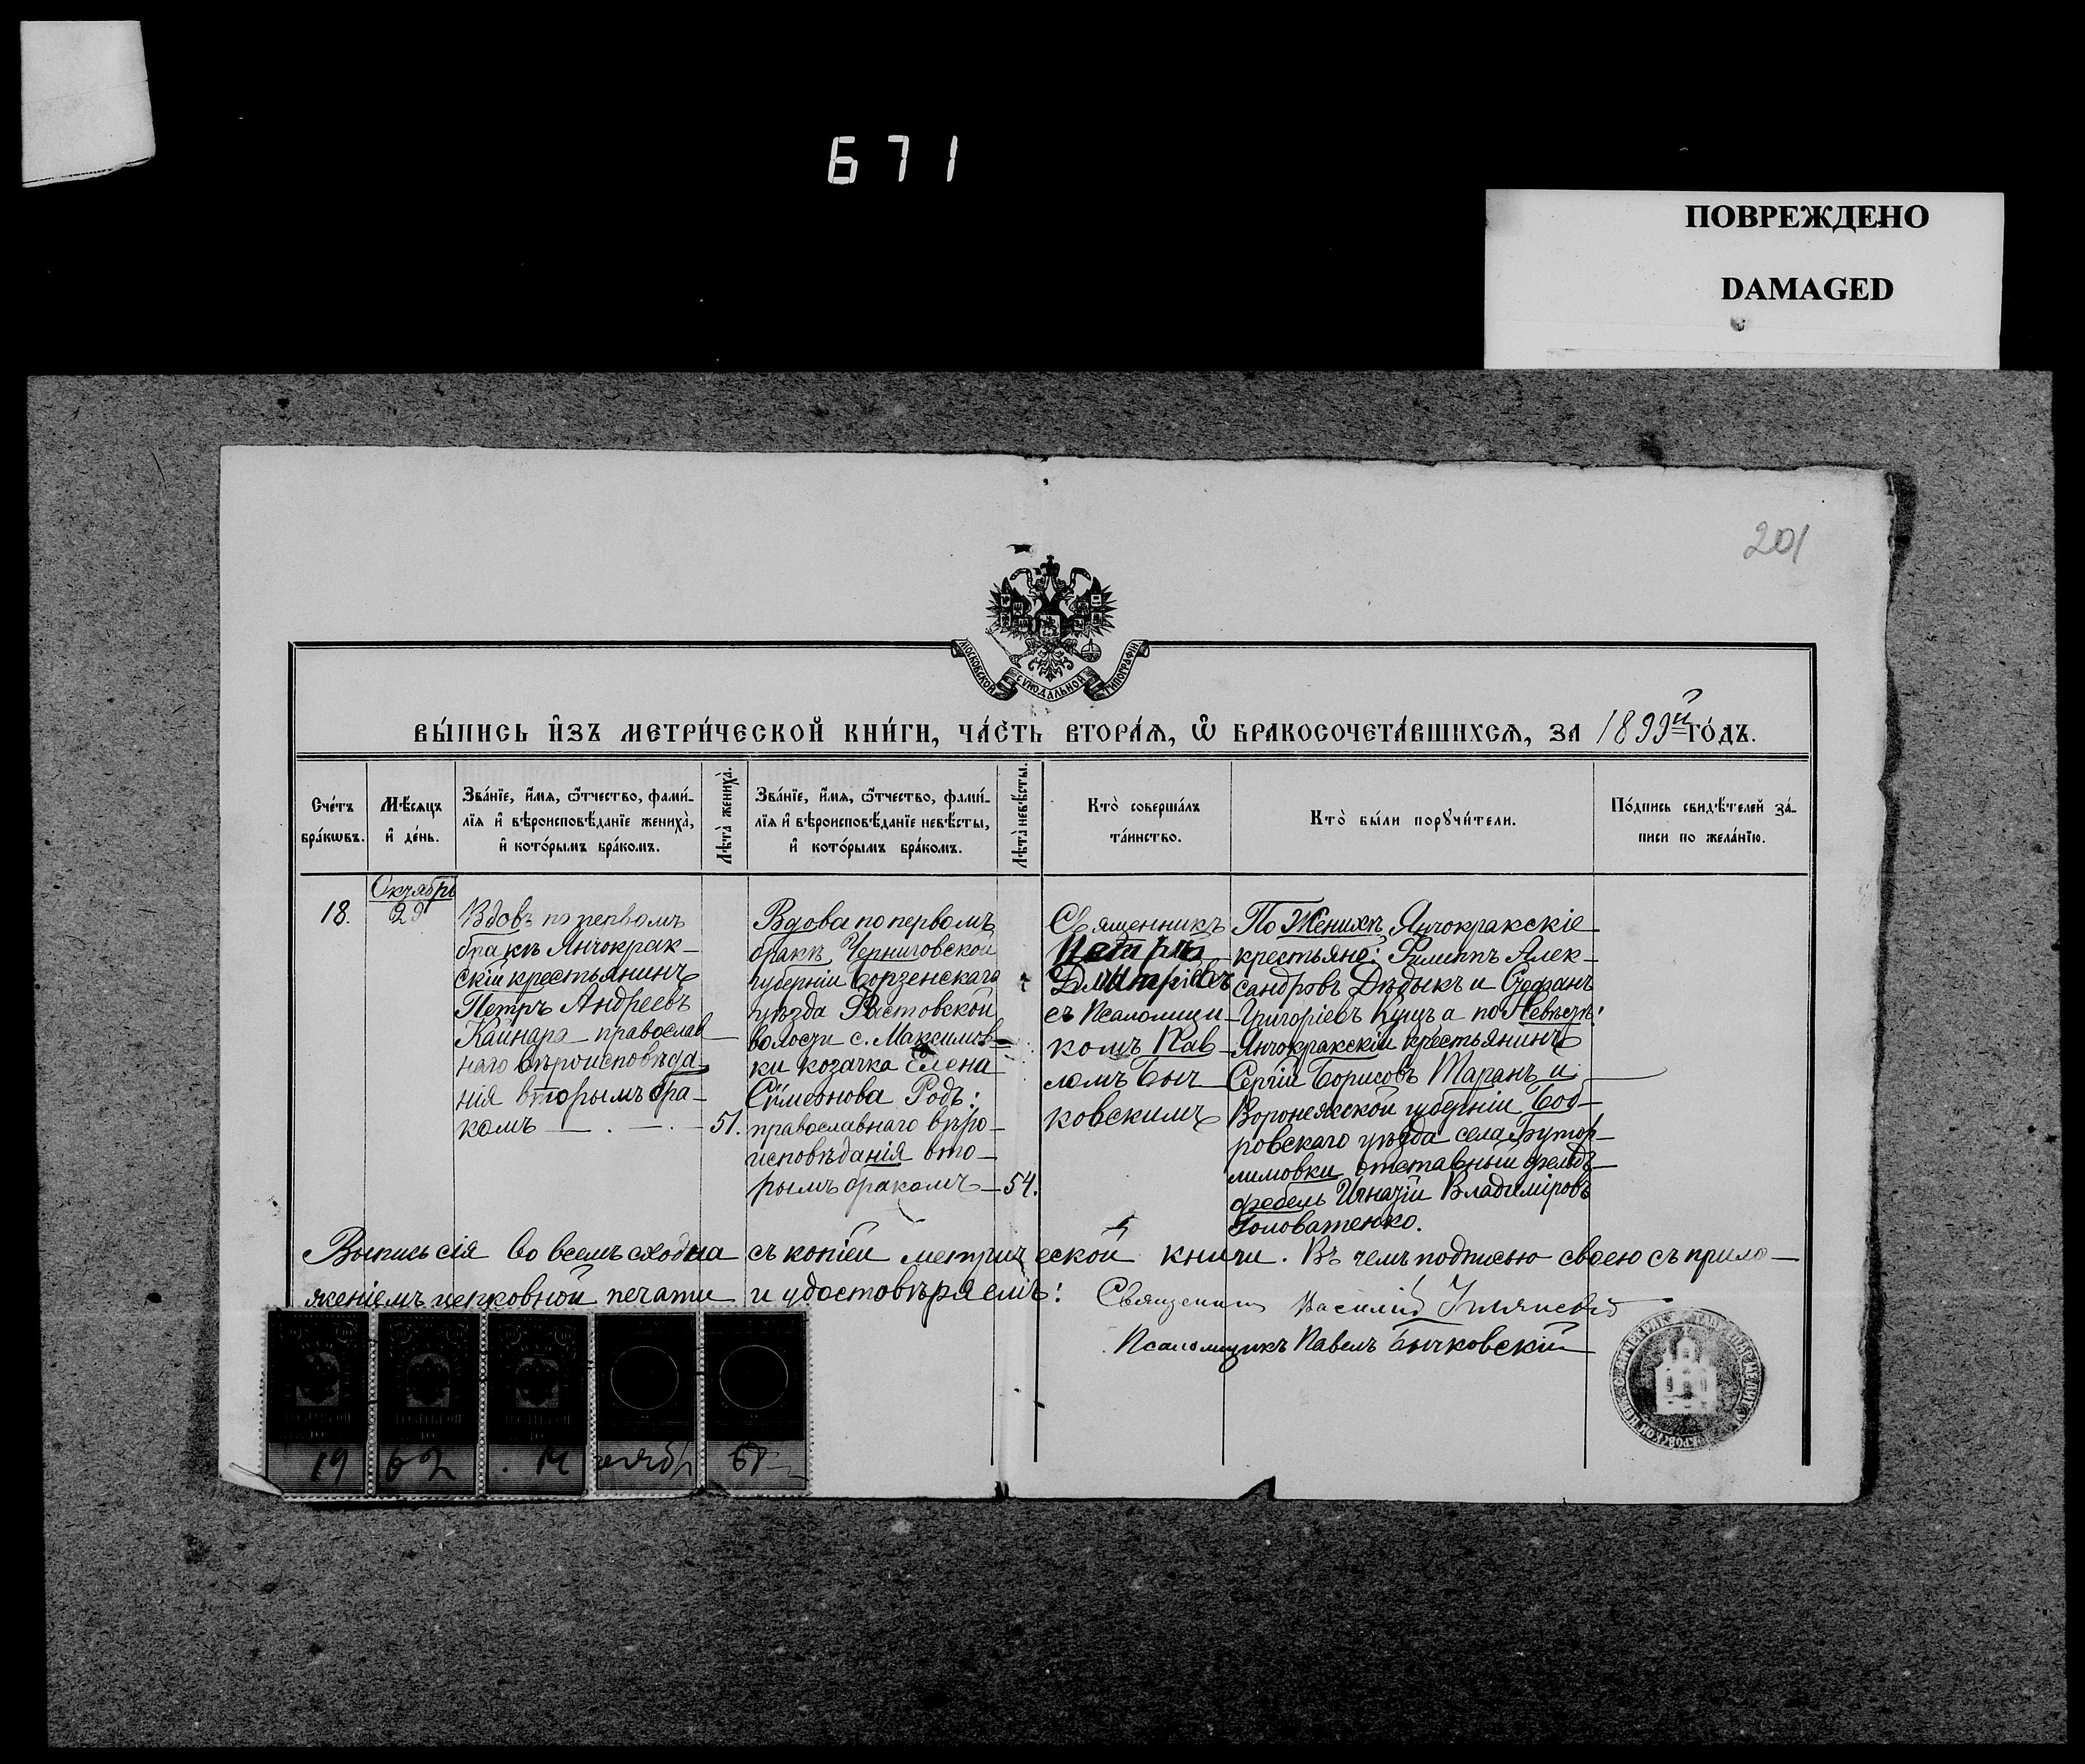 671
ПОВРЕЖДЕНО
DAMAGED
201
МОСКОВСКОЙ СѴНОДАЛЬНОЙ ТИПОГРАФІИ
ВЫ́ПИСЬ И҆ЗЪ МЕТРИ́ЧЕСКОЙ КНИ́ГИ, ЧА́СТЬ ВТОРА́Ѧ, Ѡ҆ БРАКОСОЧЕТА́ВШИХСѦ, ЗА 1899й ГО́ДЪ.
Сче́тъ бра́кѡвъ.
Мѣ́сяцъ и҆ де́нь.
Зва́нїе, и҆́мя, ѻ҆́тчество, фами́-
лїя и҆ вѣроисповѣ́данїе жениха̀,
и҆ кото́рымъ бра́комъ.
Лѣ́та жениха̀.
Зва́нїе, и҆́мя, ѻ҆́тчество, фами́-
лїя и҆ вѣроисповѣ́данїе невѣ́сты,
и҆ кото́рымъ бра́комъ.
Лѣ́та невѣ́сты.
Кто̀ соверша́лъ
та́инство.
Кто̀ бы́ли порꙋчи́тели.
По́дпись свидѣ́телей за́-
писи по жела́нїю.
18.
Октябрь
Вдовъ по первомъ
бракѣ Янчокрак-
скій крестьянинъ
Петръ Андреевъ
Кайнара православ
наго вѣроисповѣда-
нія вторымъ бра-
комъ
51.
Вдова по первомъ
бракѣ, Черниговской
губерніи Борзенскаго
уѣзда
волости с. Максимов-
ки козачка Елена
Симеонова Родъ:
православнаго вѣро-
исповѣданія вто-
рымъ бракомъ
54.
Священникъ
Петръ
Димитріевъ
съ Псаломщи-
комъ Пав-
ломъ Быч-
ковскимъ
По Женихѣ Янчокракскіе
крестьяне: Филиппъ Алек-
сандровъ Дѣдыкъ и Стефанъ
Григоріевъ Куцъ а по Невѣстѣ:
Янчокракскій крестьянинъ
Сергій Борисовъ Таранъ и
Воронежской губерніи Боб-
ровскаго уѣзда села Бутур-
лимовки отставный фельд-
фебель Игнатій Владиміровъ
Головатенко.
Выпись сія во всемъ сходна съ копіей метрической книги. Въ чемъ подписью своею съ прило-
женіемъ церковной печати и удостовѣряемъ: Священникъ Василій
Псаломщикъ Павелъ Бычковскій